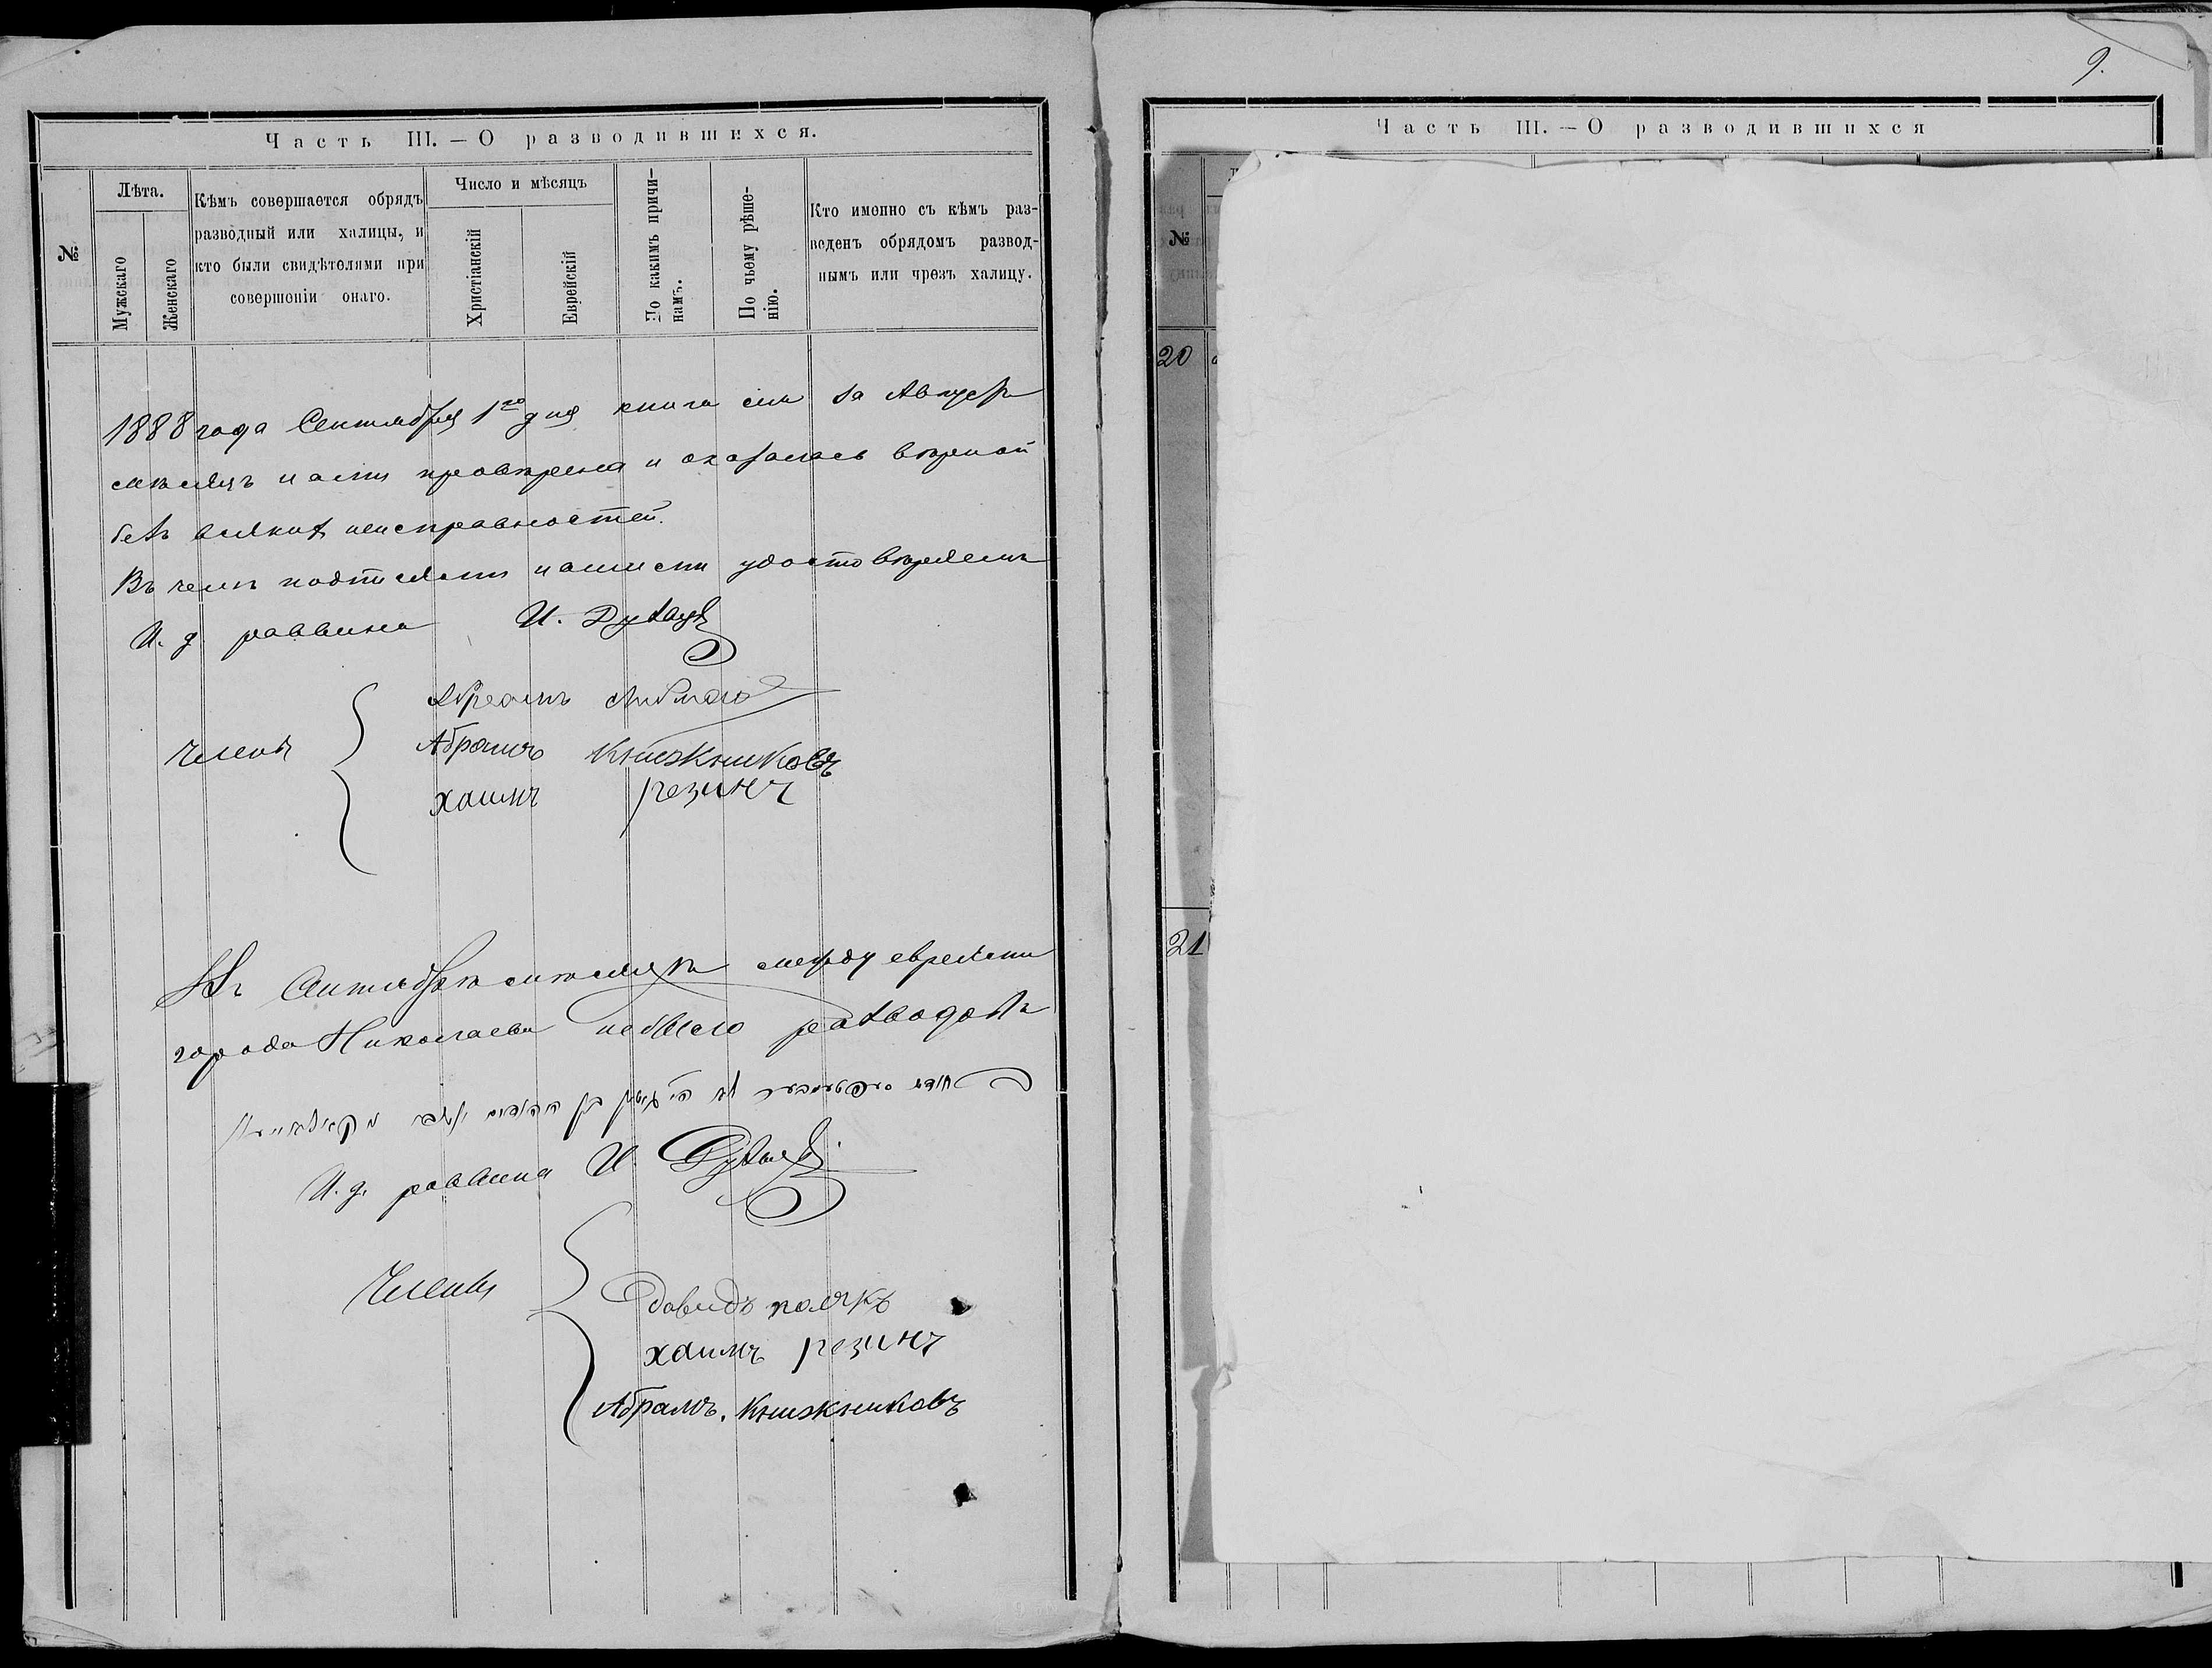 Часть III. — О разводившихся.
№
Лѣта.
Мужскаго
Женскаго
Кѣмъ совершается обрядъ
разводный или халицы, и
кто были свидѣтелями при
совершеніи онаго.
Число и мѣсяцъ
Христіанскій
Еврейскій
По какимъ причи-
намъ.
По чьему рѣше-
нію.
Кто именно съ кѣмъ раз-
веденъ обрядомъ развод-
нымъ или чрезъ халицу.
1888 года Сентября 1го дня книга сія за Августъ
мѣсяцъ нами провѣрена и оказалась вѣрной
безъ всякихъ неисправностей.
Въ чемъ подписями нашими удостовѣряемъ
И. д. раввина И.
Члены
Абрамъ
Абрамъ Книжниковъ
хаимъ резинъ
Въ Сентябрѣ мѣсяцѣ между евреями
города Николаева небыло разводовъ
И. д. раввина И.
Члены
Давидъ полякъ
хаимъ резинъ
Абрамъ. Книжниковъ
9.
Часть III. — О разводившихся
№
20
21